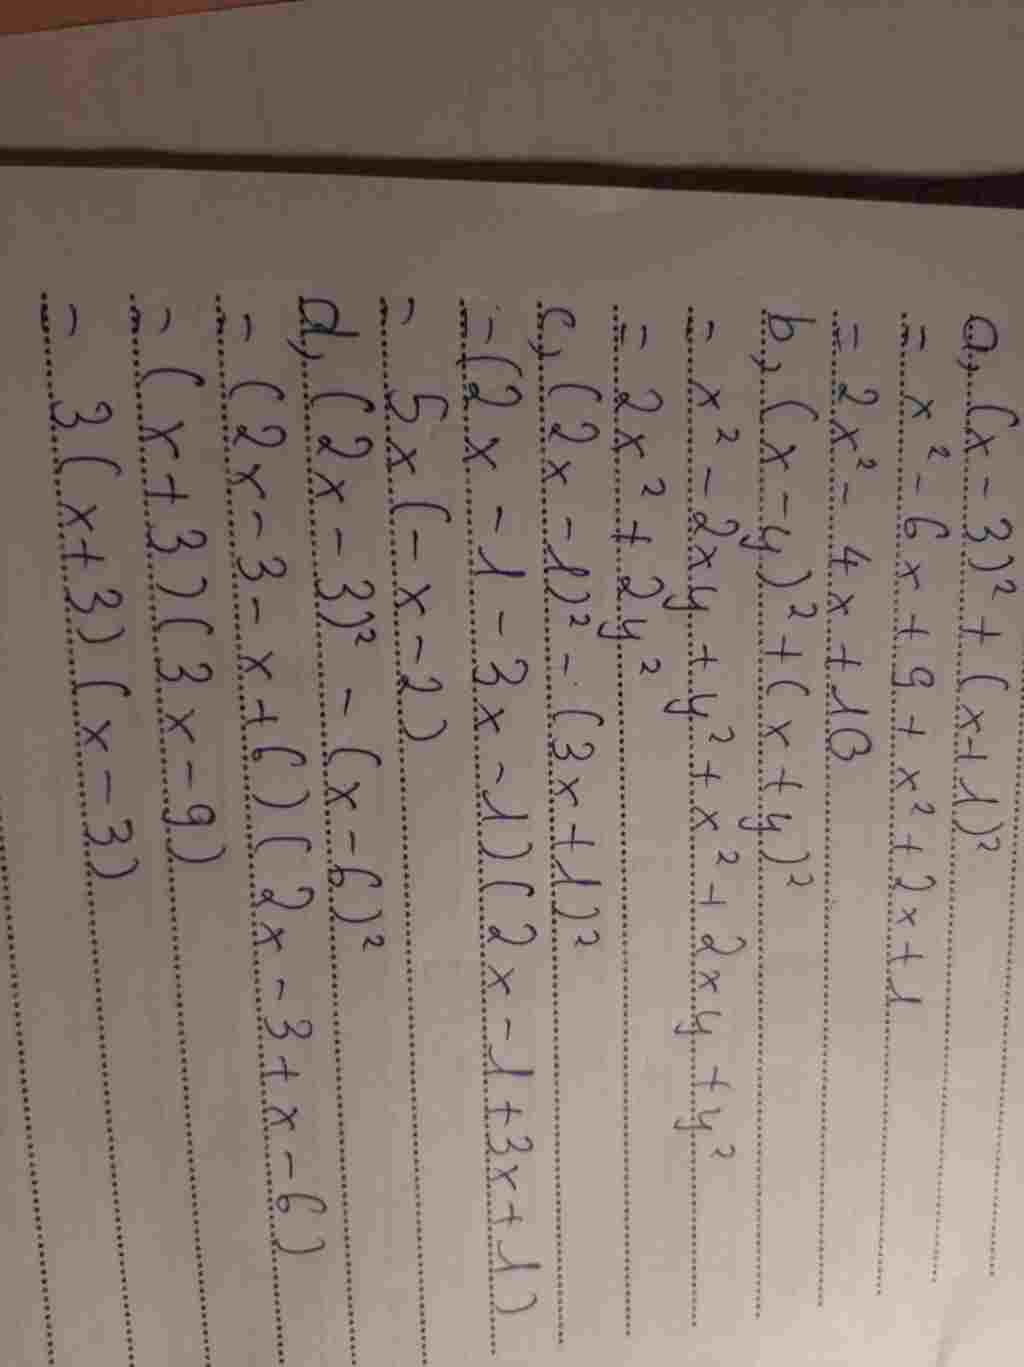 a, (x - 3)² + (x+1)²
= x² - 6x + 9 + x² + 2x + 1
= 2x² - 4x + 10
b, (x - y)² + (x + y)²
= x² - 2xy + y² + x² + 2xy + y²
= 2x² + 2y²
c, (2x - 1)² - (3x + 1)²
= (2x - 1 - 3x - 1)(2x - 1 + 3x + 1)
= 5x (-x - 2)
d, (2x - 3)² - (x - 6)²
= (2x - 3 - x + 6)(2x - 3 + x - 6)
= (x + 3)(3x - 9)
= 3(x+3)(x - 3)